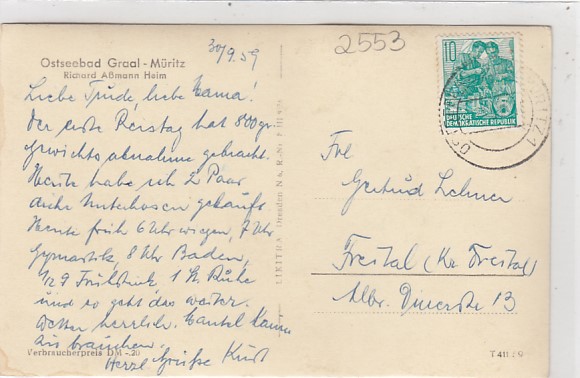 30/9.59
2553
Ostseebad Graal - Müritz
Richard Aßmann Heim
10
DEUTSCHE
DEMOKRATISCHE REPUBLIK
Liebe Trude, liebe Mama!
Der erste Reisetag hat 800 gr
Gewichtsabnahme gebracht.
Heute habe ich 2 Paar
dicke Unterhosen gekauft.
Heute früh 6 Uhr wiegen, 7 Uhr
Gymnastik, 8 Uhr Baden,
1/2 9 Frühstück, 1 St. Ruhe
und so geht das weiter.
Wetter herrlich. Mantel kann
zu brauchen.
Herzl Grüße Kurt
Frl
Gertrud Lehner
Freital (Kr Freital)
Albr. Dürerstr 13
Verbraucherpreis DM -.20